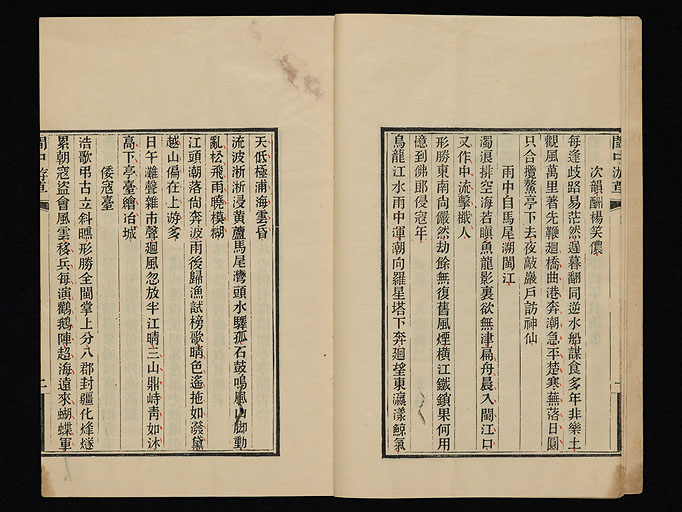 次韻酬楊笑儂
每逢歧路易茫然遲暮翻同逆水船謀食多年非樂土
觀風萬里著先鞭迴橋曲港奔潮急平楚寒蕪落日圓
只合攬鰲亭下去夜敲巖戸訪神仙
雨中自馬尾溯閩江
濁浪排空海若瞋魚龍影裏欲無津扁舟晨入閩江口
又作中流擊檝人
形勝東南尙儼然劫餘無復舊風煙橫江鐵鎖果何用
憶到佛郎侵寇年
烏龍江水雨中渾潮向羅星塔下奔迴望東瀛漾鯨氣
天低極浦海雲昏
流波淅淅浸黃蘆馬尾灣頭水驛孤石鼓鳴風山脚動
亂松飛雨曉模糊
江頭潮落尙奔波雨後歸漁試榜歌晴色遙拖如潑黛
越山偏在上游多
日午灘聲雜市聲迴風忽放半江晴三山鼎峙靑如沐
高下亭臺繪冶城
倭寇臺
浩歌弔古立斜曛形勝全閩掌上分八郡封疆化烽燧
累朝寇盜會風雲移兵每演鸛鵝陣超海遠來蝴蝶軍
閩中游草
二